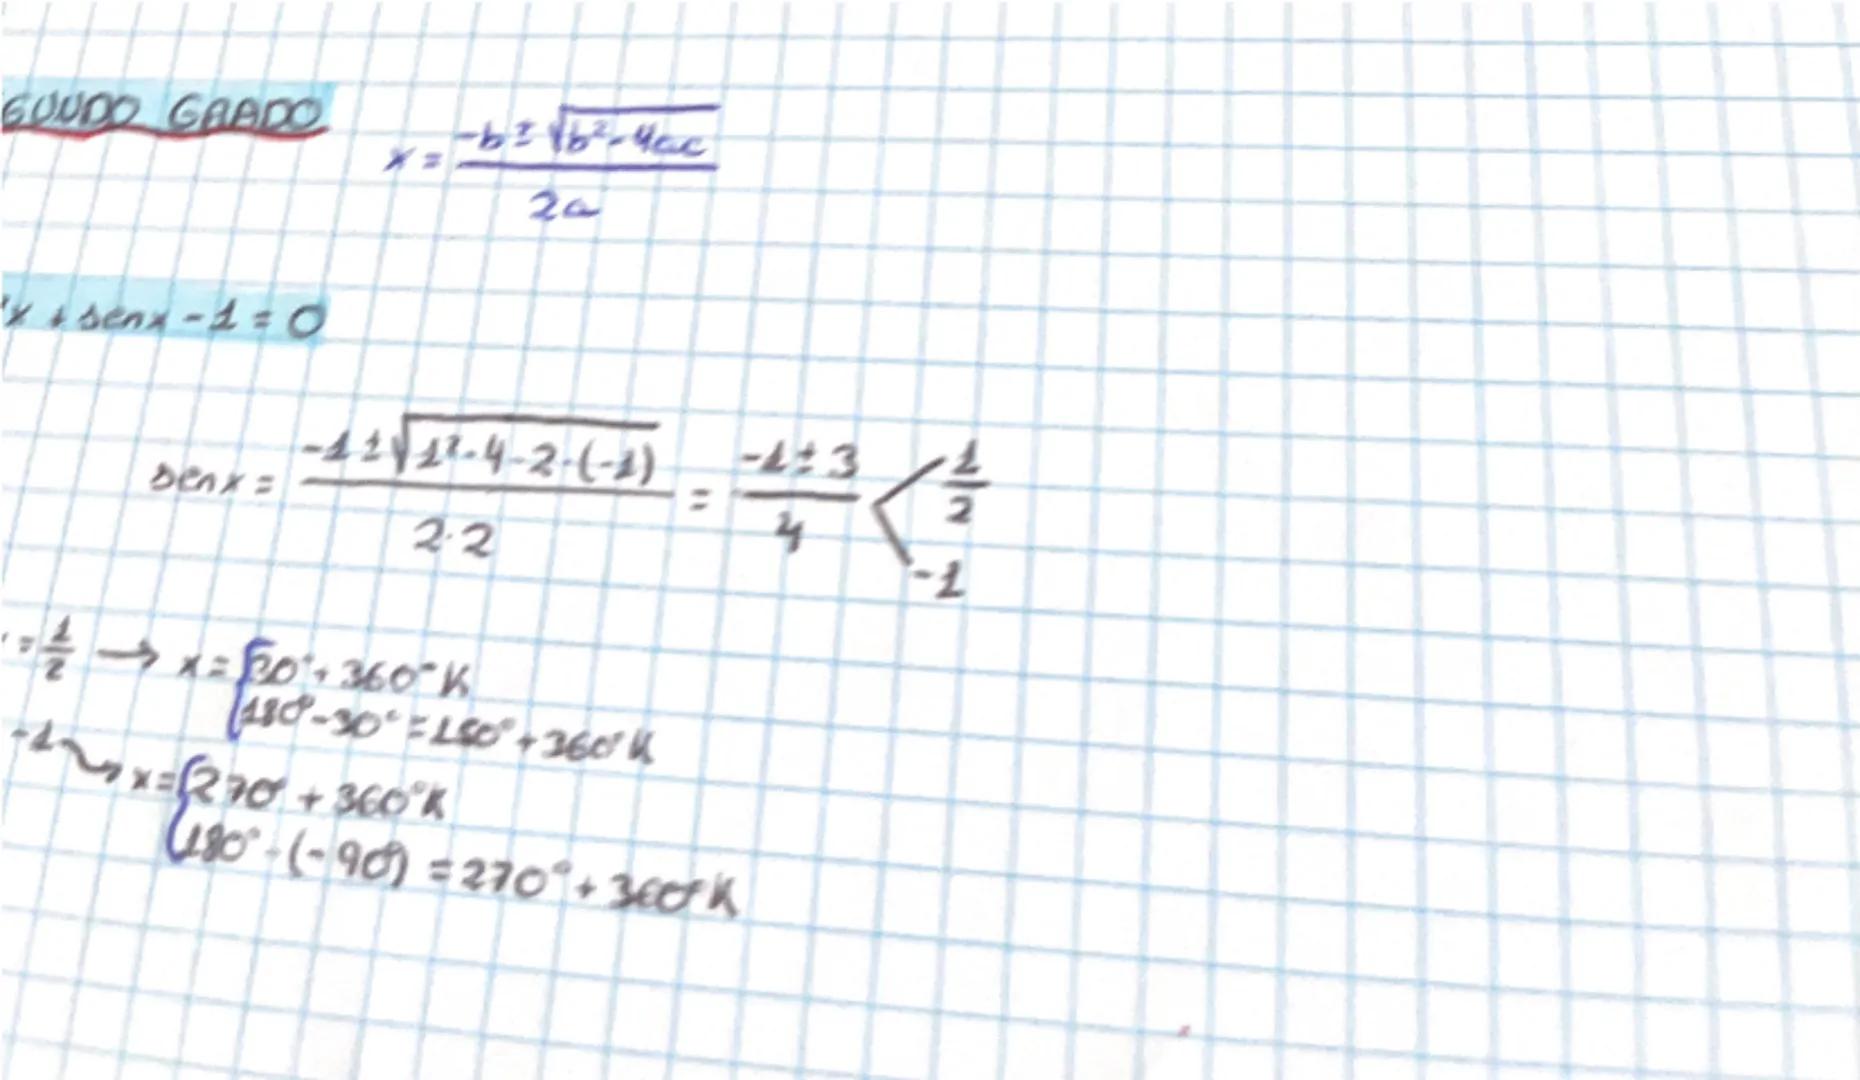 GUNDO GRADO
x = \frac{-b ± \sqrt{b² - 4ac}}{2a}
x + sen x - 1 = 0
sen x = \frac{-1 ± \sqrt{1² - 4 · 2 · (-1)}}{2 · 2} = \frac{-1 ± 3}{4} < \frac{1}{2}
-1
= \frac{1}{2} → x = { 30° + 360° K
180° - 30° = 150° + 360° K
-1 → x = { 270° + 360° K
180° - (-90°) = 270° + 360° K